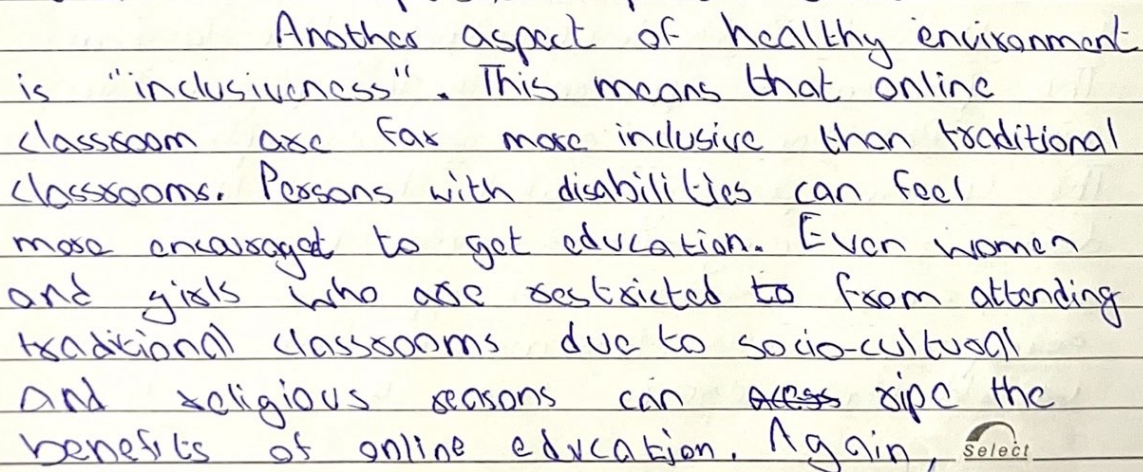 Another aspect of healthy environment
is "inclusiveness". This means that online
classroom are far more inclusive than traditional
classrooms. Persons with disabilities can feel
more encouraged to get education. Even women
and girls who are restricted to from attending
traditional classrooms due to socio-cultural
and religious reasons can access ripe the
benefits of online education. Again,
Select